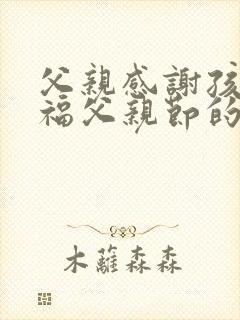 父親感謝孩
福父親節的
木蘿森森